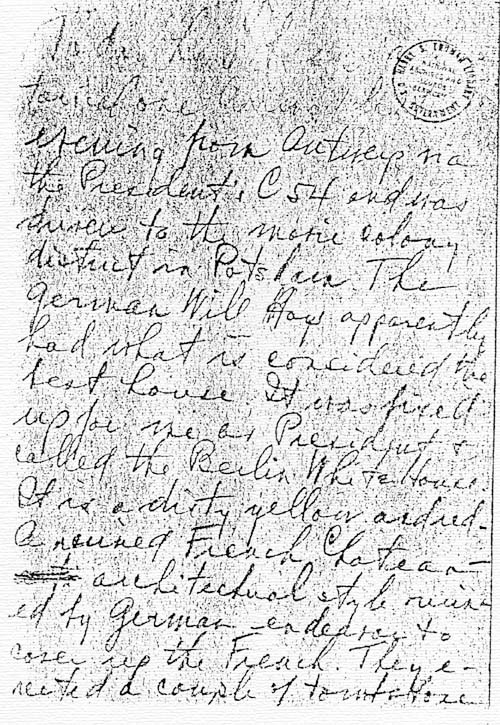 HARRY S. TRUMAN LIBRARY
evening from Antwerp via
the President's C54 and was
driven to the movie colony
district in Potsdam. The
German Will Hays apparently
had what is considered the
best house. It was fixed
up for me as President &
called the Berlin White House.
It is a dirty yellow and red-
A ruined French Chateau-
architectual style ruin-
ed by German endeavor to
cover up the French. They e-
rected a couple of tombstone